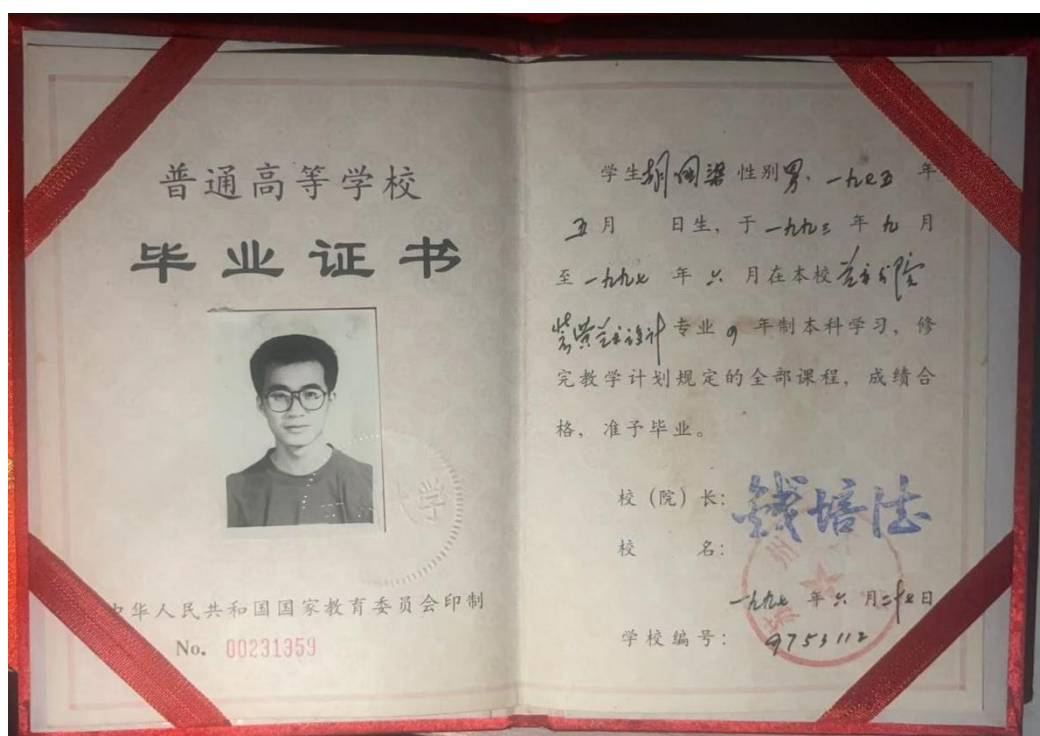 普通高等学校
毕业证书
大学
中华人民共和国国家教育委员会印制
No. 00231359
学生胡国梁 性别男，一九七五 年
五月 日生，于一九九三 年 九 月
至一九九七 年 六 月在本校艺术学院
装潢艺术设计专业 四 年制本科学习，修
完教学计划规定的全部课程，成绩合
格，准予毕业。
校（院）长：钱培德
校 名：
一九九七 年六 月二十七日
学校编号： 9753112